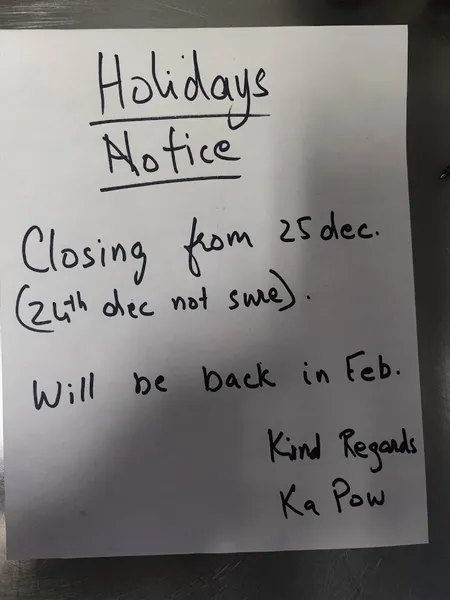 Holidays
Notice
Closing from 25 dec.
(24th dec not sure).
Will be back in Feb.
Kind Regards
Ka Pow